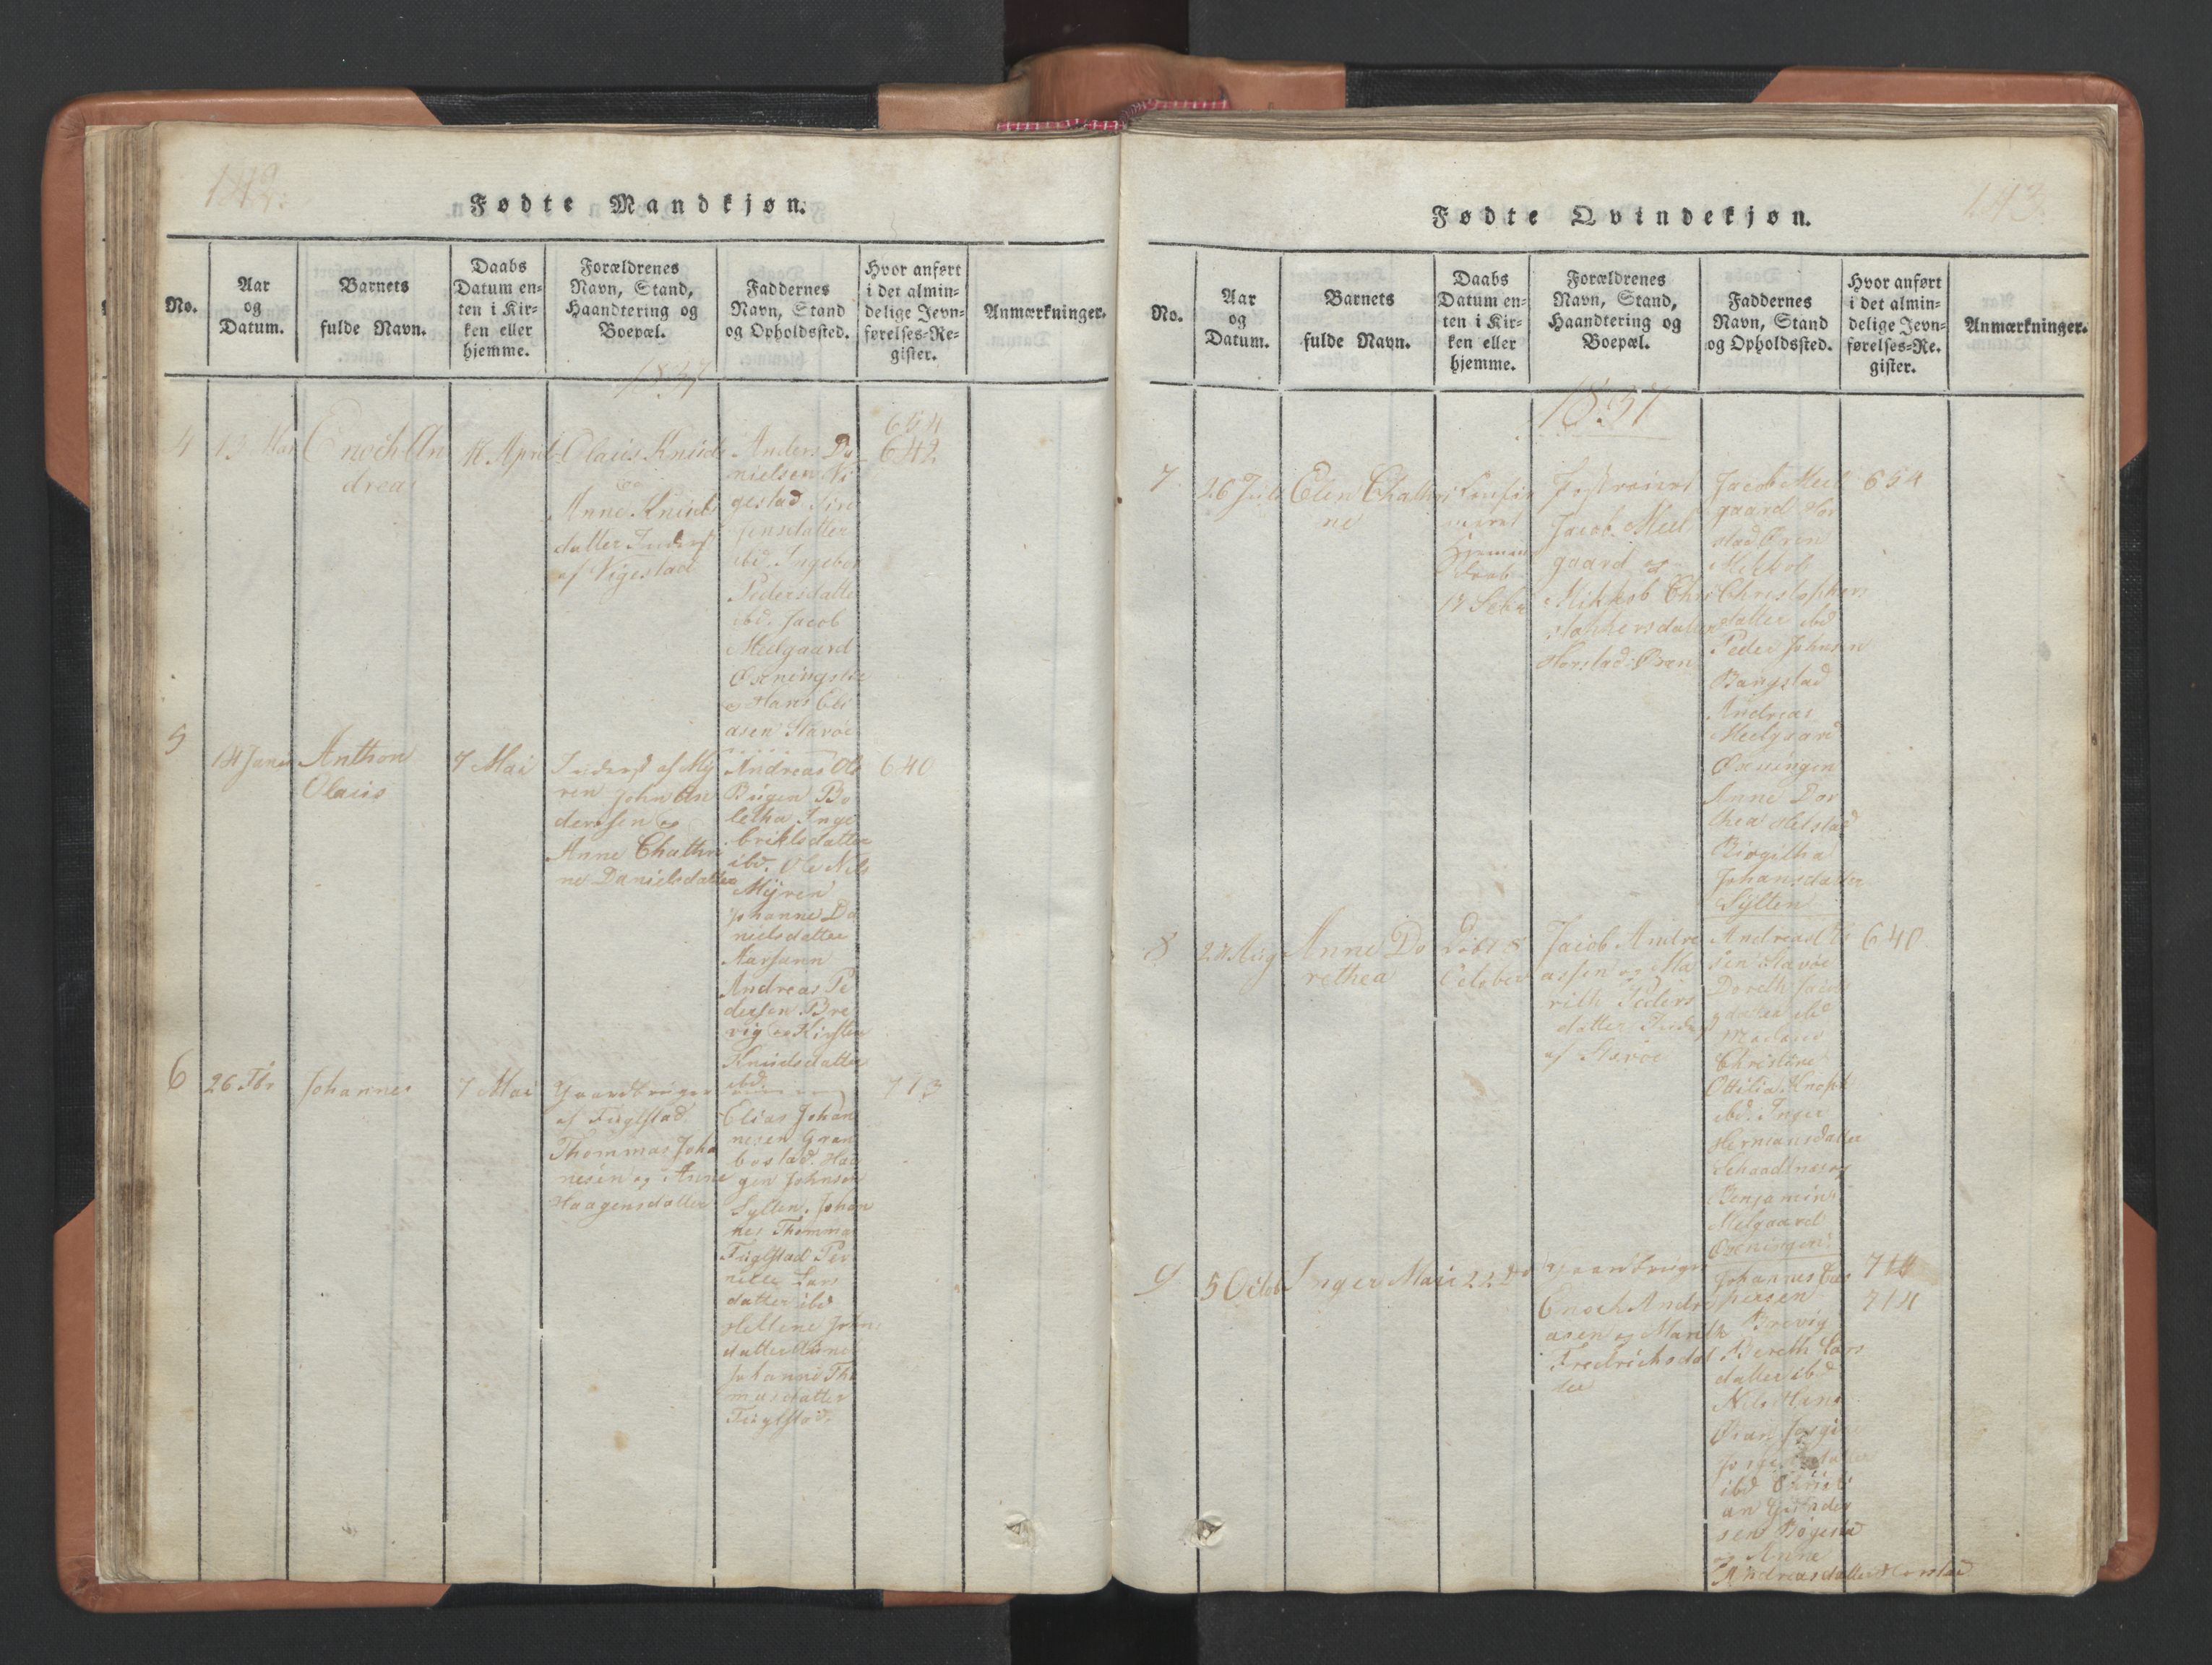 142.
Fødte Mandkjøn.
No.
Aar
og
Datum.
Barnets
fulde Navn.
Daabs
Datum en-
ten i Kir-
ken eller
hjemme.
Forældrenes
Navn, Stand,
Haandtering og
Boepæl.
Faddernes
Navn, Stand
og Opholdssted.
Hvor anført
i det almin-
delige Jevn-
førelses-Re-
gister.
Anmærkninger.
1837
4
13 Mar
Enoch An
dreas
16 April
Olaus Knuds
og
Anne Knuds
datter Inderst
af Vigestad
Anders Da
nielsen Vi
gestad
Jensdatter
ibd. Ingebor
Pedersdatter
ibd. Jacob
Meelgaard
Oxningen
og Hans Eli
asen Starøe
654
642
5
14 Janu
Anthon
Olaus
7 Mai
Inderst af My
ren John An
dersen og
Anne Chathri
ne Danielsdatter
Andreas Ols
Bugen Bo
letha Inge
briktsdatter
ibd. Ole Nils
Myren
Johanne Da
nielsdatter
Aarsann
Andreas Pe
dersen Bre
vig og Kirsten
Knudsdatter
ibd.
640
6
26 Fbr
Johannes
7 Mai
Gaardbruger
af Fuglstad
Thommas Joha
nesen og Anne
Haagensdatter
Elias Johan
nesen Gran
bostad. Haa
gen Johnsen
Sylten. Johan
nes Thommas
Fuglstad Per
nille Lars
datter ibd
Hellene John
datter
Johanne Tho
masdatter
Fuglstad.
713
143
Fødte Qvindekjøn.
No.
Aar
og
Datum.
Barnets
fulde Navn.
Daabs
Datum en-
ten i Kir-
ken eller
hjemme.
Forældrenes
Navn, Stand,
Haandtering og
Boepæl.
Faddernes
Navn, Stand
og Opholdssted.
Hvor anført
i det almin-
delige Jevn-
førelses-Re-
gister.
Anmærkninger.
1837
7
26 Juli
Elen Chathri
ne
Confir
meret
Hjemme
daab
17 Sebt
Jacob Meel
gaard og
Mikkob Chri
stophersdatter
Horstad Øren
Jacob Meel
gaard Hor
stad Øren
Mikkob
Christophers
datter ibd
Peder Johnsen
Bangstad
Andreas
Meelgaard
Oxningen
Anne Dor
thea Helstad
Birgitha
Johansdatter
Sylten
654
8
27 Aug
Anne Do
rethea
Døbt 8
October
Jacob Andre
assen og Ma
rith Peders
datter Inderst
af Starøe
Andreas El
sen Starøe
Doreth Jacobs
datter ibd
Madame
Christine
Ottilia Knoph
ibd. Inger
Hermansdatter
og
Benjamin
Melgaard
Oxningen.
640
9
5 Octob
Inger Marie
22 Do
Gaardbruger
Enoch Andre
asen og Marith
Fredrichsdat
ter
Johannes Cas
persen
Brevig
Bereth Lars
datter ibd
Nils Hans
Øran
ibd Christi
an
sen Bøgestad
og Anne
Andreasdatter Horstad
714
714